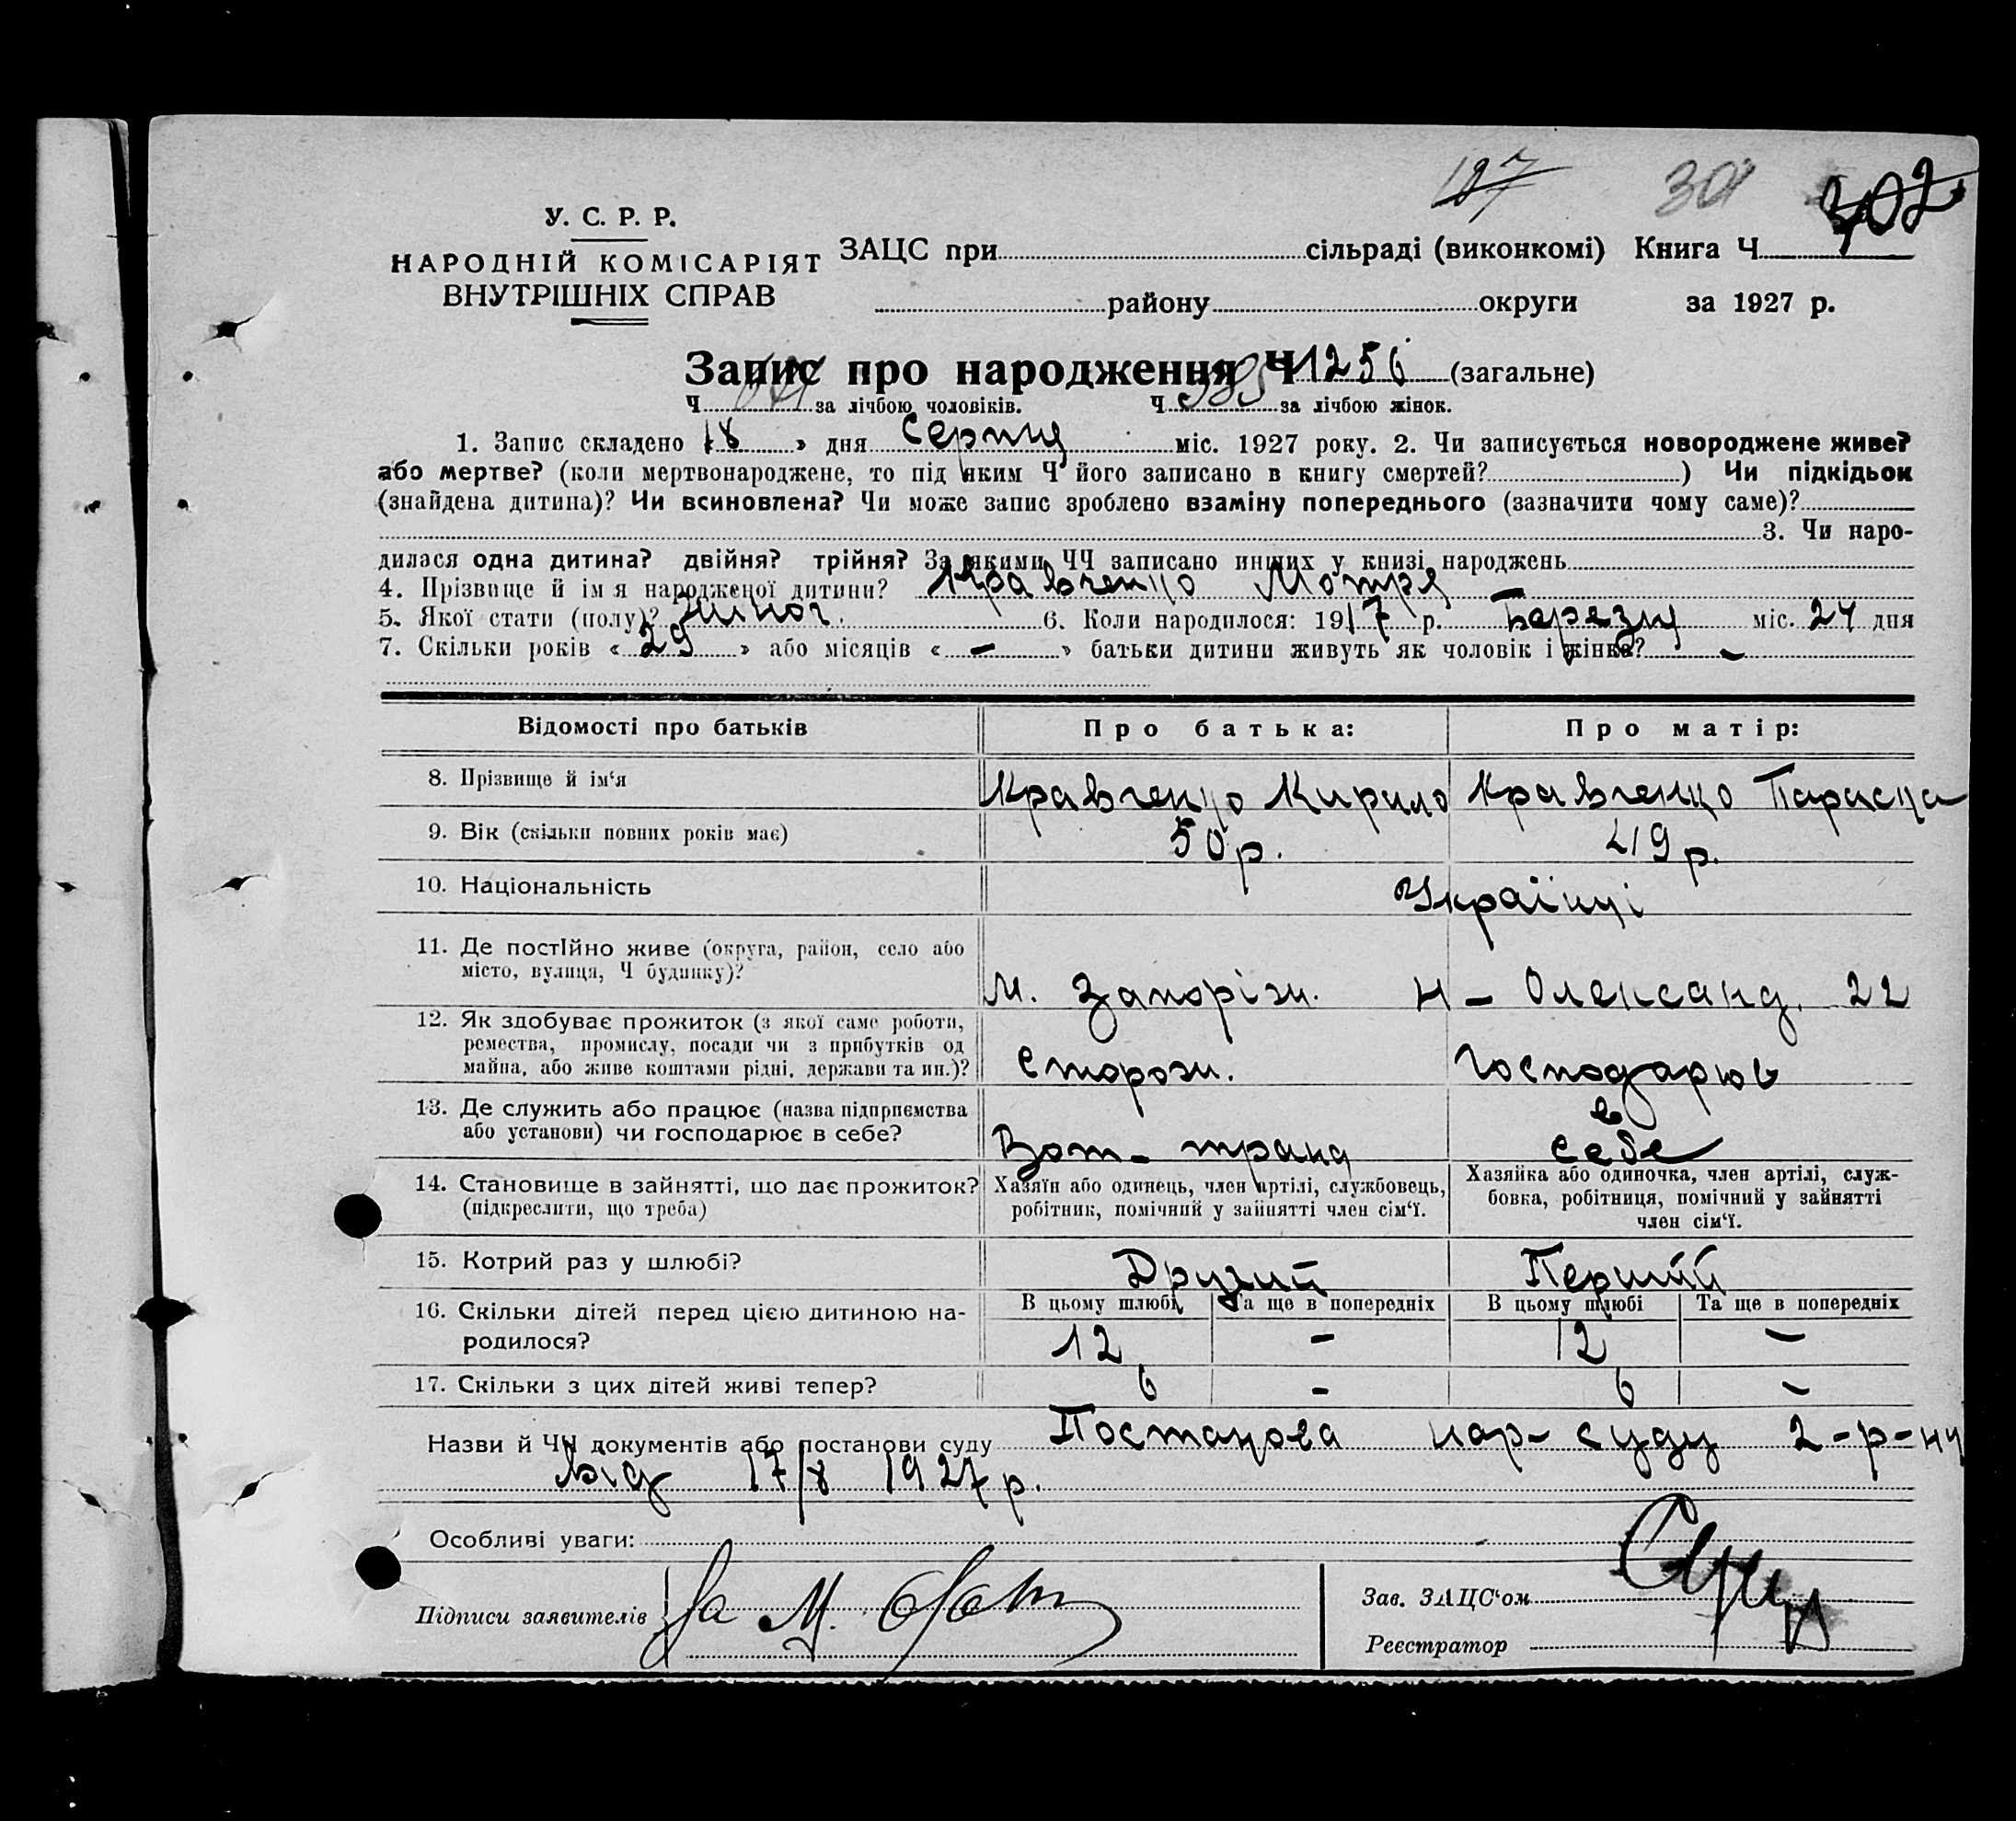 127 301 302
У. С. Р. Р.
НАРОДНІЙ КОМІСАРІЯТ
ВНУТРІШНІХ СПРАВ
ЗАЦС при сільраді (виконкомі) Книга Ч
району округи за 1927 р.
Запис про народження Ч 1256 (загальне)
Ч за лічбою чоловіків. Ч 585 за лічбою жінок.
1. Запис складено «18» дня Серпця міс. 1927 року. 2. Чи записується новороджене живе?
або мертве? (коли мертвонароджене, то під яким Ч його записано в книгу смертей? ) Чи підкідьок
(знайдена дитина)? Чи всиновлена? Чи може запис зроблено взаміну попереднього (зазначити чому саме)?
3. Чи наро-
дилася одна дитина? двійня? трійня? За якими ЧЧ записано инших у книзі народжень
4. Прізвище й ім я народженої дитини? Кравченко Мотря
5. Якої стати (полу)? жіноч. 6. Коли народилося: 1917 р. Березня міс. 24 дня
7. Скільки років «29» або місяців «–» батьки дитини живуть як чоловік і жінка? –
Відомості про батьків Про батька: Про матір:
8. Прізвище й ім‘я Кравченко Кирило Кравченко Параска
9. Вік (скільки повних років має) 50 р. 49 р.
10. Національність Українці
11. Де постійно живе (округа, район, село або
місто, вулиця, Ч будинку)? м. Запоріж. Н – Олександ. 22
12. Як здобуває прожиток (з якої саме роботи,
ремества, промислу, посади чи з прибутків од
майна, або живе коштами рідні, держави та ин.)? Сторож. Господарює
13. Де служить або працює (назва підпрпємства
або установи) чи господарює в себе? транд в себе
14. Становище в зайнятті, що дає прожиток?
(підкреслити, що треба)
Хазяїн або одинець, член артілі, службовець,
робітник, помічний у зайнятті член сім‘ї.
Хазяйка або одиночка, член артілі, служ-
бовка, робітниця, помічний у зайнятті
член сім‘ї.
15. Котрий раз у шлюбі? Другий Перший
16. Скільки дітей перед цією дитиною на-
родилося?
В цьому шлюбі Та ще в попередніх В цьому шлюбі Та ще в попередніх
12 – 12 –
17. Скільки з цих дітей живі тепер? 6 – 6 –
Назви й ЧЧ документів або постанови суду Постанова нар– суду 2–р–ну
від 17/8 1927 р.
Особливі уваги:
Підписи заявителів За М.
Зав. ЗАЦС‘ом
Реєстратор